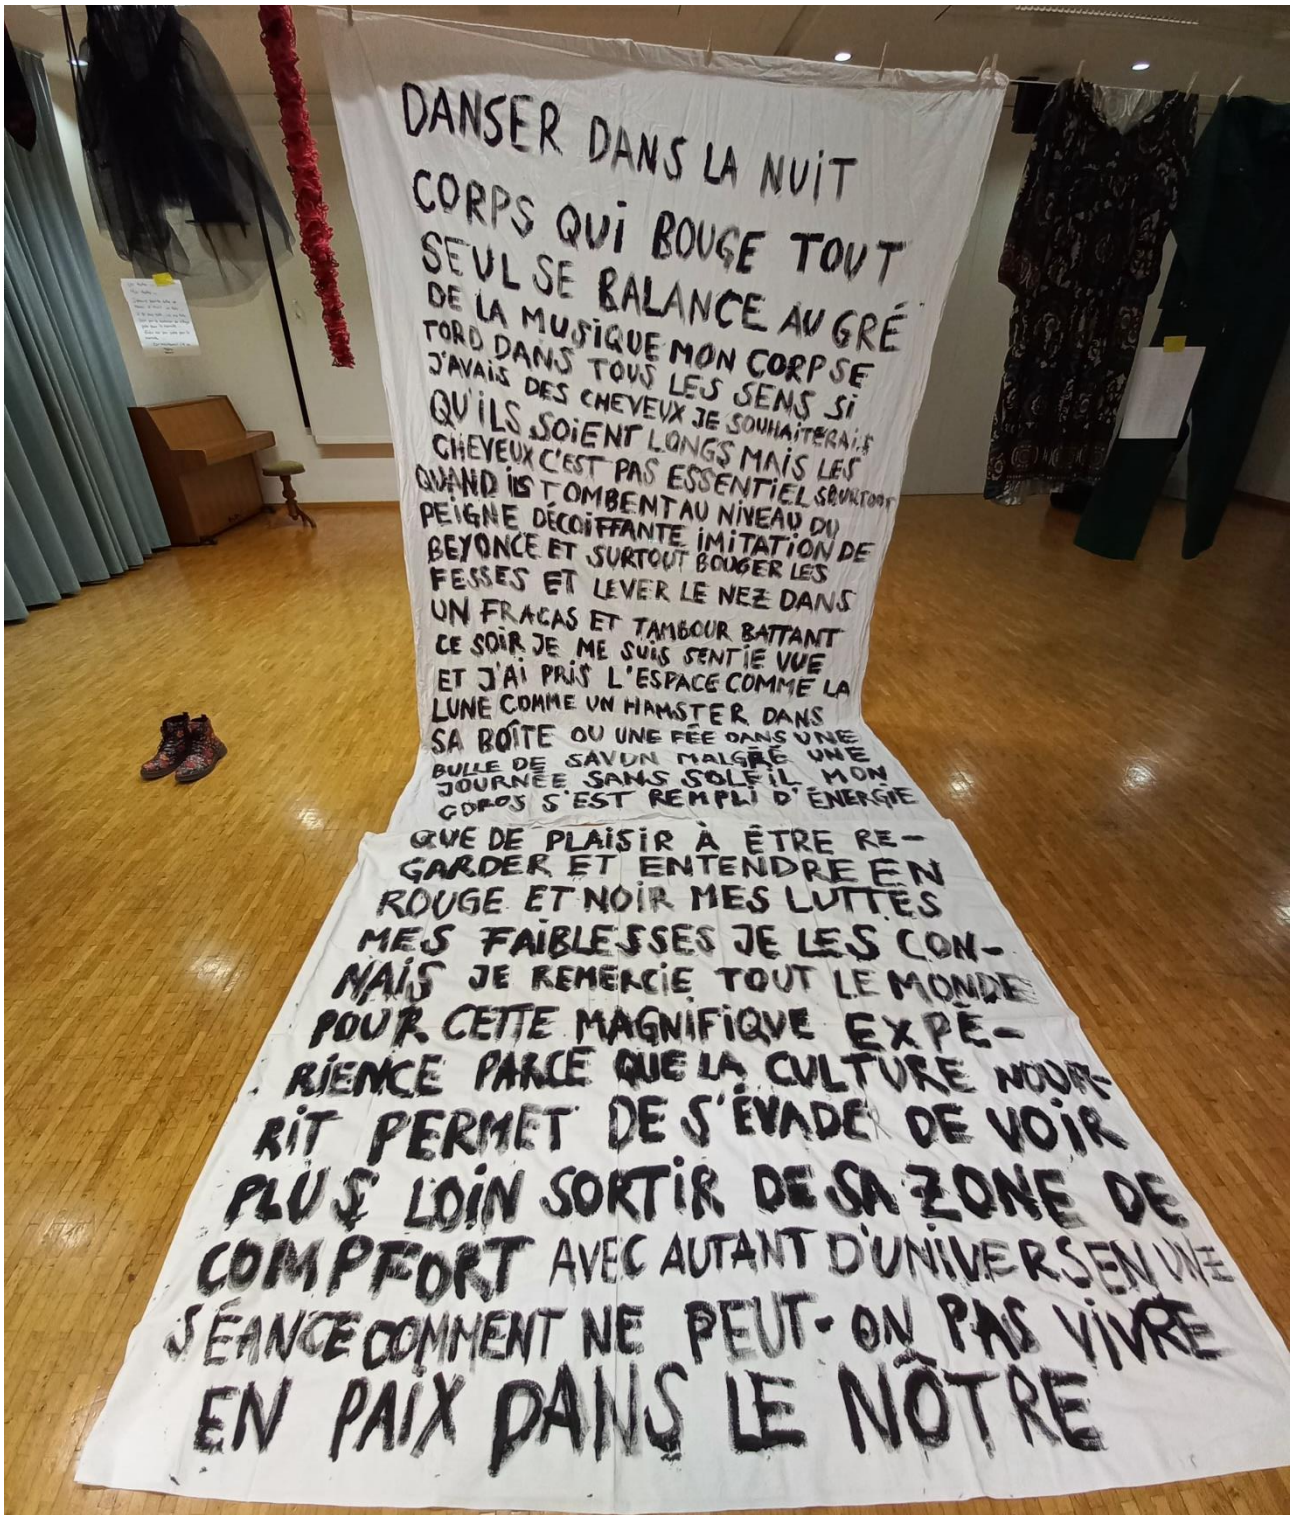 DANSER DANS LA NUIT
CORPS QUI BOUGE TOUT
SEUL SE BALANCE AU GRÉ
DE LA MUSIQUE MON CORP SE
TORD DANS TOUS LES SENS SI
J'AVAIS DES CHEVEUX JE SOUHAITERAIS
QU'ILS SOIENT LONGS MAIS LES
CHEVEUX C'EST PAS ESSENTIEL SEURTOUT
QUAND ILS TOMBENT AU NIVEAU DU
PEIGNE DÉCOIFFANTE IMITATION DE
BEYONCE ET SURTOUT BOUGER LES
FESSES ET LEVER LE NEZ DANS
UN FRACAS ET TAMBOUR BATTANT
CE SOIR JE ME SUIS SENTIE VUE
ET J'AI PRIS L'ESPACE COMME LA
LUNE COMME UN HAMSTER DANS
SA BOÎTE OU UNE FÉE DANS UNE
BULLE DE SAVON MALGRÉ UNE
JOURNÉE SANS SOLEIL MON
CORPS S'EST REMPLI D'ÉNERGIE
QUE DE PLAISIR À ÊTRE RE-
GARDER ET ENTENDRE EN
ROUGE ET NOIR MES LUTTES
MES FAIBLESSES JE LES CON-
NAIS JE REMERCIE TOUT LE MONDE
POUR CETTE MAGNIFIQUE EXPÉ-
RIENCE PARCE QUE LA CULTURE NOUR-
RIT PERMET DE S'ÉVADER DE VOIR
PLUS LOIN SORTIR DE SA ZONE DE
COMPFORT AVEC AUTANT D'UNIVERS EN UNE
SÉANCE COMMENT NE PEUT-ON PAS VIVRE
EN PAIX DANS LE NÔTRE